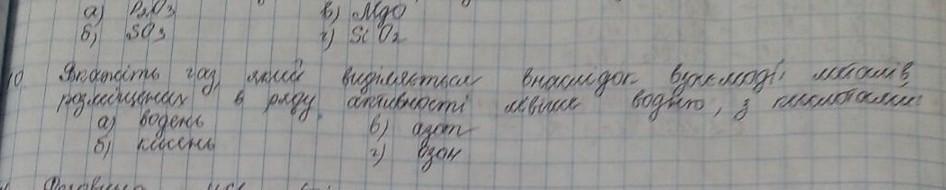 а) P2O3 в) MgO
б) SO3 г) SiO2
10 Вкажіть газ, який виділяється внаслідок взаємодії металів,
розміщених в ряду активності лівіше водню, з кислотами:
а) водень в) азот
б) кисень г) озон